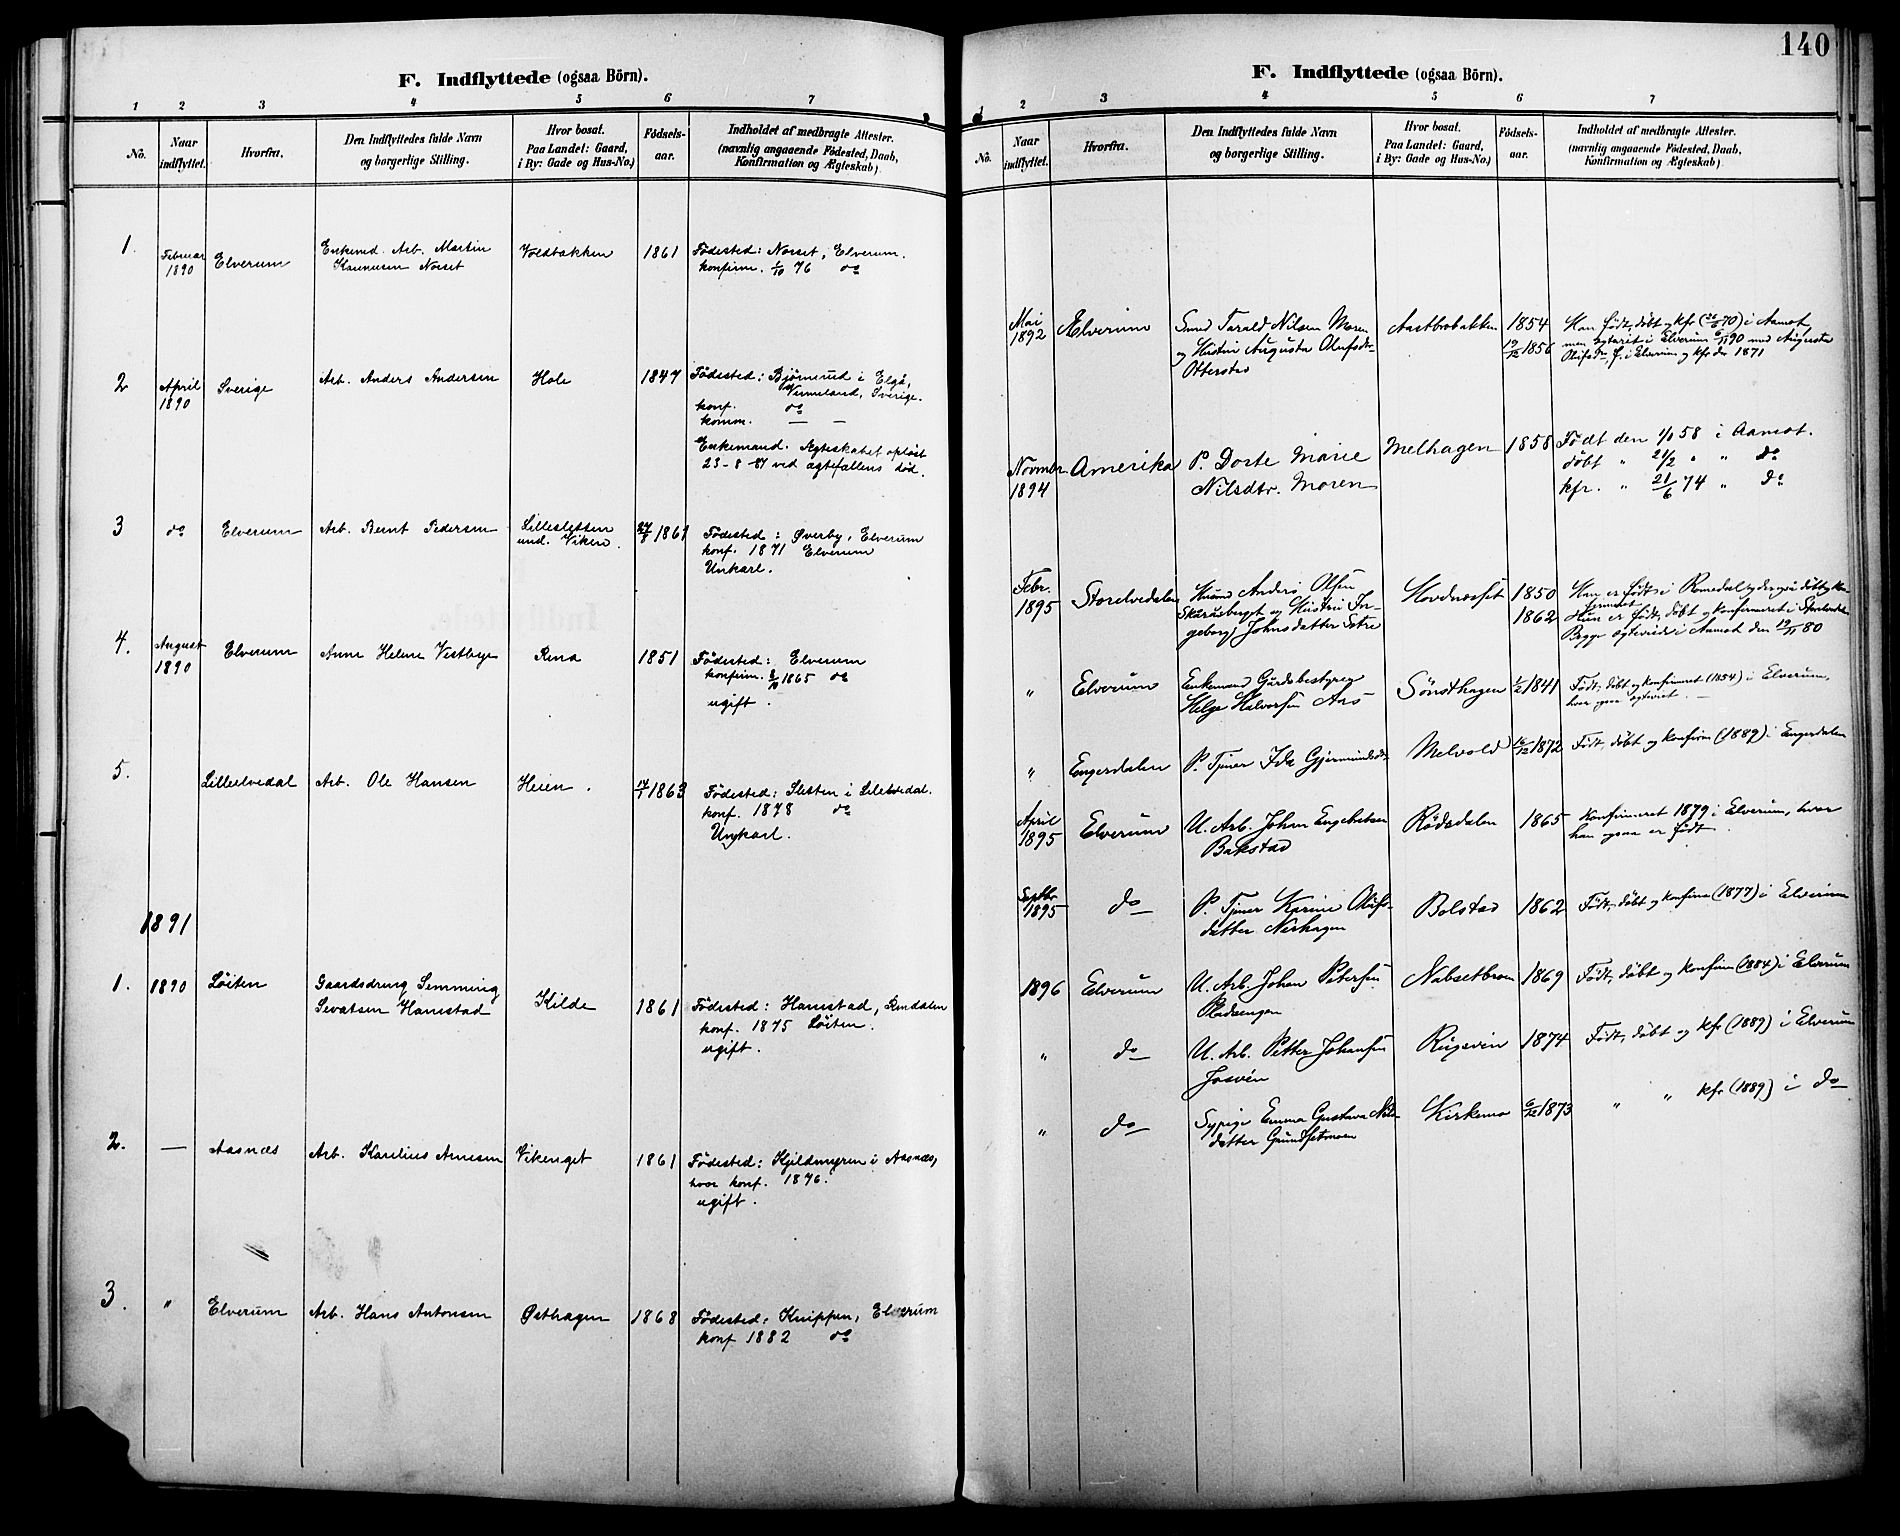 F. Indflyttede (ogsaa Börn).
1 2 3 4 5 6 7
No. Naar indflyttet. Hvorfra. Den Indflyttedes fulde Navn og borgerlige Stilling. Hvor bosat. Paa Landet: Gaard, i By: Gade og Hus-No.) Fødsels-aar. Indholdet af medbragte Attester. (navnlig angaaende Födested, Daab, Konfirmation og Ægteskab)
1. Februar 1890 Elverum Enkemd. Arb. Martin Norset Voldbakken 1861 Födested: Norset, Elverum.
konfirm. 1/10 76 do
2 April 1890 Sverige Arb. Anders Andersen Hole 1847 Födested: Bjørnerud i Elgå,
Vermeland, Sverige.
konf. do
komm. — —
Enkemand. Ægteskabet opløst
23-8-87 ved ægtefællens død.
3 do Elverum Arb. Bernt Pedersen Lillesletten und. Viken. 1861 Födested: Øverby, Elverum
konf. 1871 Elverum
Unkarl.
4. August 1890 Elverum Anne Helene Vestbye Rena 1851 Födested: Elverum
konfirm. 1865 do
ugift.
5. Lilleelvedal Arb. Ole Hansen Heien. 1863 Födested: Slesten i Lilelvedal.
konf. 1878 do
Ungkarl.
1891
1. 1890 Løiten Gaardsdreng Semming
Sevatsen Hanestad Kilde 1861 Födested: Hanestad, Rendalen
konf. 1875 Løiten.
ugift.
2. — Aasnæs Arb. Karelius Arnesen Vikenget 1861 Födested: Kjildmyren i Aasnæs,
hvor konf. 1876.
ugift.
3. " Elverum Arb. Hans Antonsen Østhagen 1868 Födested: Knippen, Elverum
konf 1882 do
140
F. Indflyttede (ogsaa Börn).
1 2 3 4 5 6 7
No. Naar indflyttet. Hvorfra. Den Indflyttedes fulde Navn og borgerlige Stilling. Hvor bosat. Paa Landet: Gaard, i By: Gade og Hus-No.) Fødsels-aar. Indholdet af medbragte Attester. (navnlig angaaende Födested, Daab, Konfirmation og Ægteskab)
Mai 1892 Elverum Smed Tarald Nilsen Moren Aastbrobakken 1854 Han født, døbt og kfr (70) i Aamot,
og Hustru Augusta Olufsdtr. 1856 men ægteviet i Elverum 90 med Augusta
Otterstad Olufsdtr, f. i Elverum og kfr der 1871
Novmbr 1894 Amerika P. Dorte Marie
Nilsdtr. Moren Melhagen 1858 Født den 58 i Aamot.
døbt " 21/2 " " do
kfr. " 21/6 74 " do
Febr. 1895 Storelvedalen Anders Olsen
Skaråsberget og Hustru Ingeborg Johnsdatter Sætre 1850 Han er født i Romedal
1862 Hun er født, døbt og konfirmeret i Storelvedalen
Begge ægteviede i Aamot den 19/11 80
" Elverum Enkemand Gårdsbestyrer
Helge Halvorsen Aas Sønsthagen 1841 Født, døbt og konfirmeret (1854) i Elverum,
hvor ogsaa ægteviet.
" Engerdalen P. Tjener Ida Gjermundsdt. Melvold 1872 Født, døbt og konfirm (1889) i Engerdalen
April 1895 Elverum U. Arb. Johan Engebretsen
Bakstad Rødsdalen 1865 Konfirmeret 1879 i Elverum, hvor
han ogsaa er født.
Septbr 1895 do P. Tjener Karine Olufsdatter Nerhagen Bolstad 1862 Født, døbt og konfirm (1877) i Elverum
1896 Elverum U. Arb. Johan Petersen
Pladsengen Nabsetbroen 1869 Født, døbt og konfirm (1884) i Elverum
" do U. Arb. Petter Johansen Rugsven 1874 Født, døbt og kfr (1889) i Elverum
" do Sypige Emma Gustava Nils-
datter Grundsetmoen Kirkemo 1873 " " kfr (1889) i do